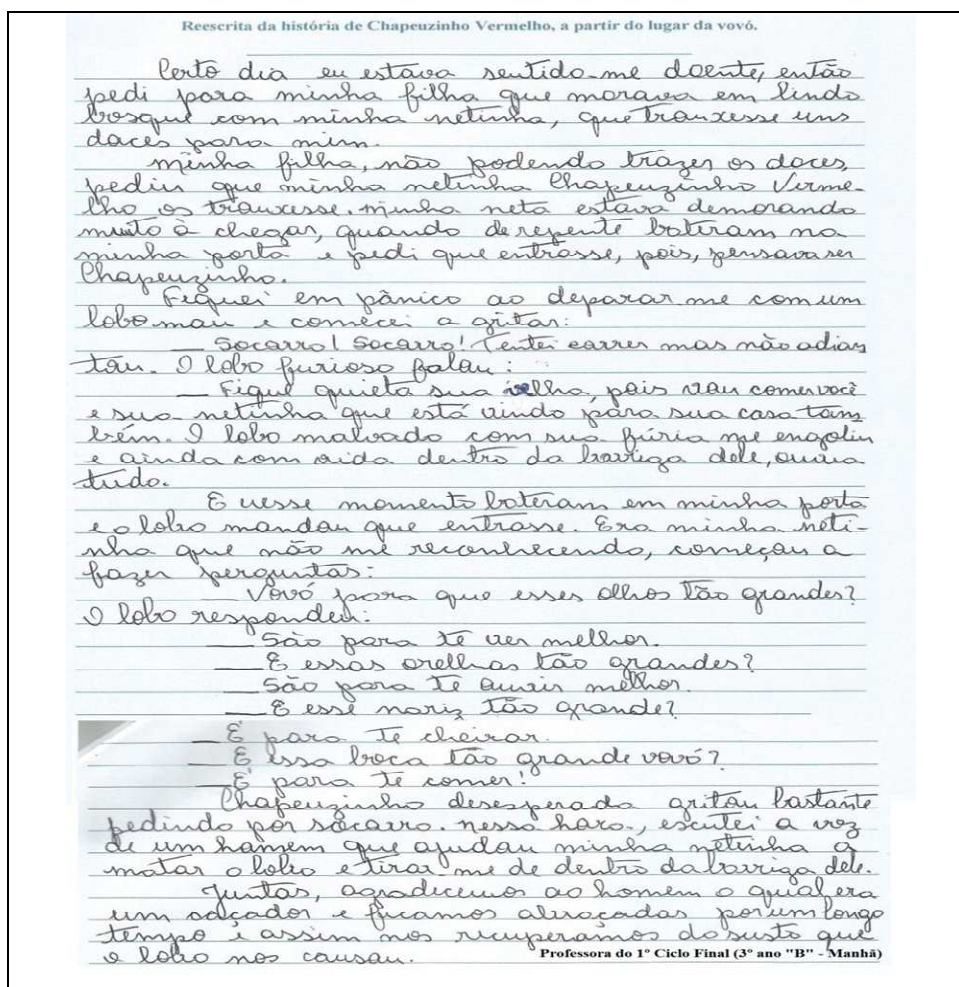 Reescrita da história de Chapeuzinho Vermelho, a partir do lugar da vovó.
Certo dia eu estava sentido-me doente, então
pedi para minha filha que morava em lindo
bosque com minha netinha, que trouxesse uns
doces para mim.
Minha filha, não podendo trazer os doces,
pediu que minha netinha Chapeuzinho Verme-
lho os trouxesse. Minha neta estava demorando
muito à chegar, quando derepente bateram na
minha porta e pedi que entrasse, pois, pensava ser
Chapeuzinho.
Fiquei em pânico ao deparar-me com um
lobo mau e comecei a gritar:
— Socorro! Socorro! Tentei correr mas não adian
tou. O lobo furioso falou:
— Fique quieta sua velha, pois vou comer você
e sua netinha que está vindo para sua casa tam
bém. O lobo malvado com sua fúria me engoliu
e ainda com vida dentro da barriga dele, ouvia
tudo.
E nesse momento bateram em minha porta
e o lobo mandou que entrasse. Era minha neti-
nha que não me reconhecendo, começou a
fazer perguntas:
— Vovó para que esses olhos tão grandes?
O lobo respondeu:
— São para te ver melhor.
— E essas orelhas tão grandes?
— São para te ouvir melhor.
— E esse nariz tão grande?
— É para te cheirar.
— E essa boca tão grande vovó?
— É para te comer!
Chapeuzinho desesperada gritou bastante
pedindo por socorro. Nessa hora, escutei a voz
de um homem que ajudou minha netinha a
matar o lobo e tirar-me de dentro da barriga dele.
Juntas, agradecemos ao homem o qual era
um caçador e ficamos abraçadas por um longo
tempo e assim nos recuperamos do susto que
o lobo nos causou.
Professora do 1º Ciclo Final (3º ano "B" - Manhã)